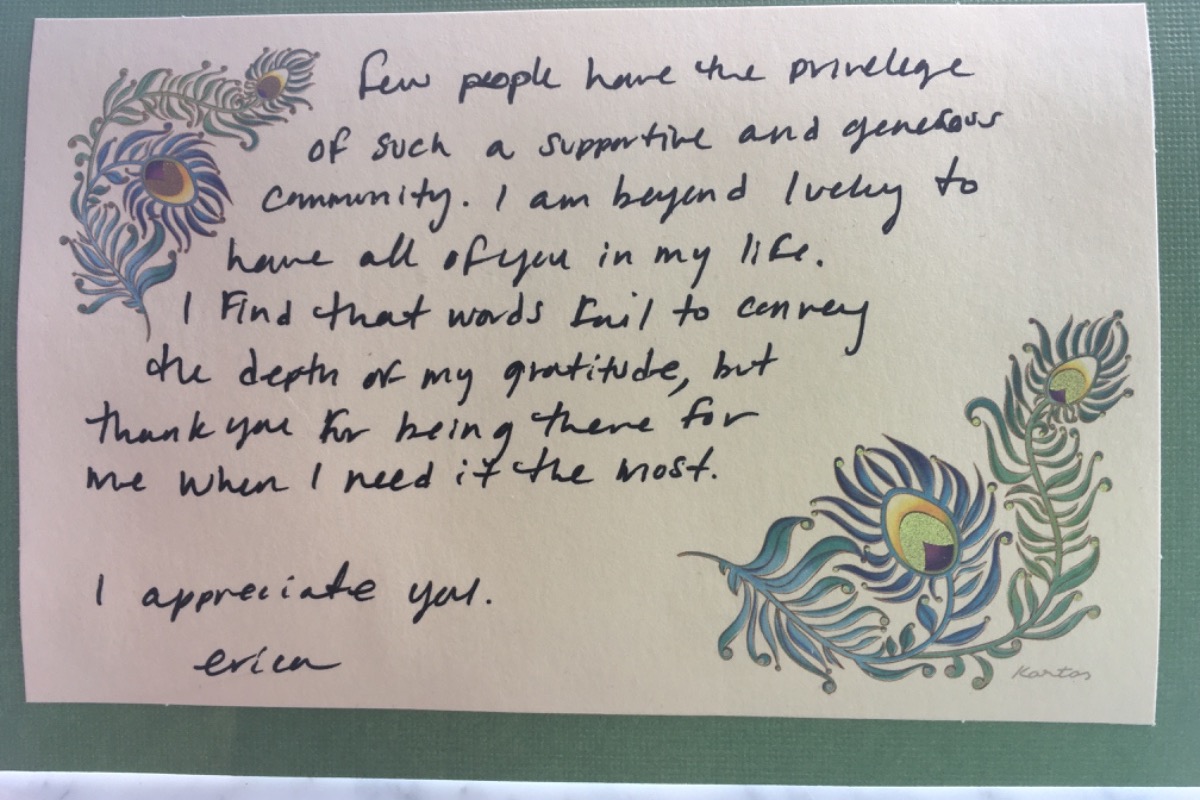 Few people have the privelege
of such a supportive and generous
community. I am beyond lucky to
have all of you in my life.
I find that words fail to convey
the depth of my gratitude, but
thank you for being there for
me when I need it the most.
I appreciate you.
erica
Kartos